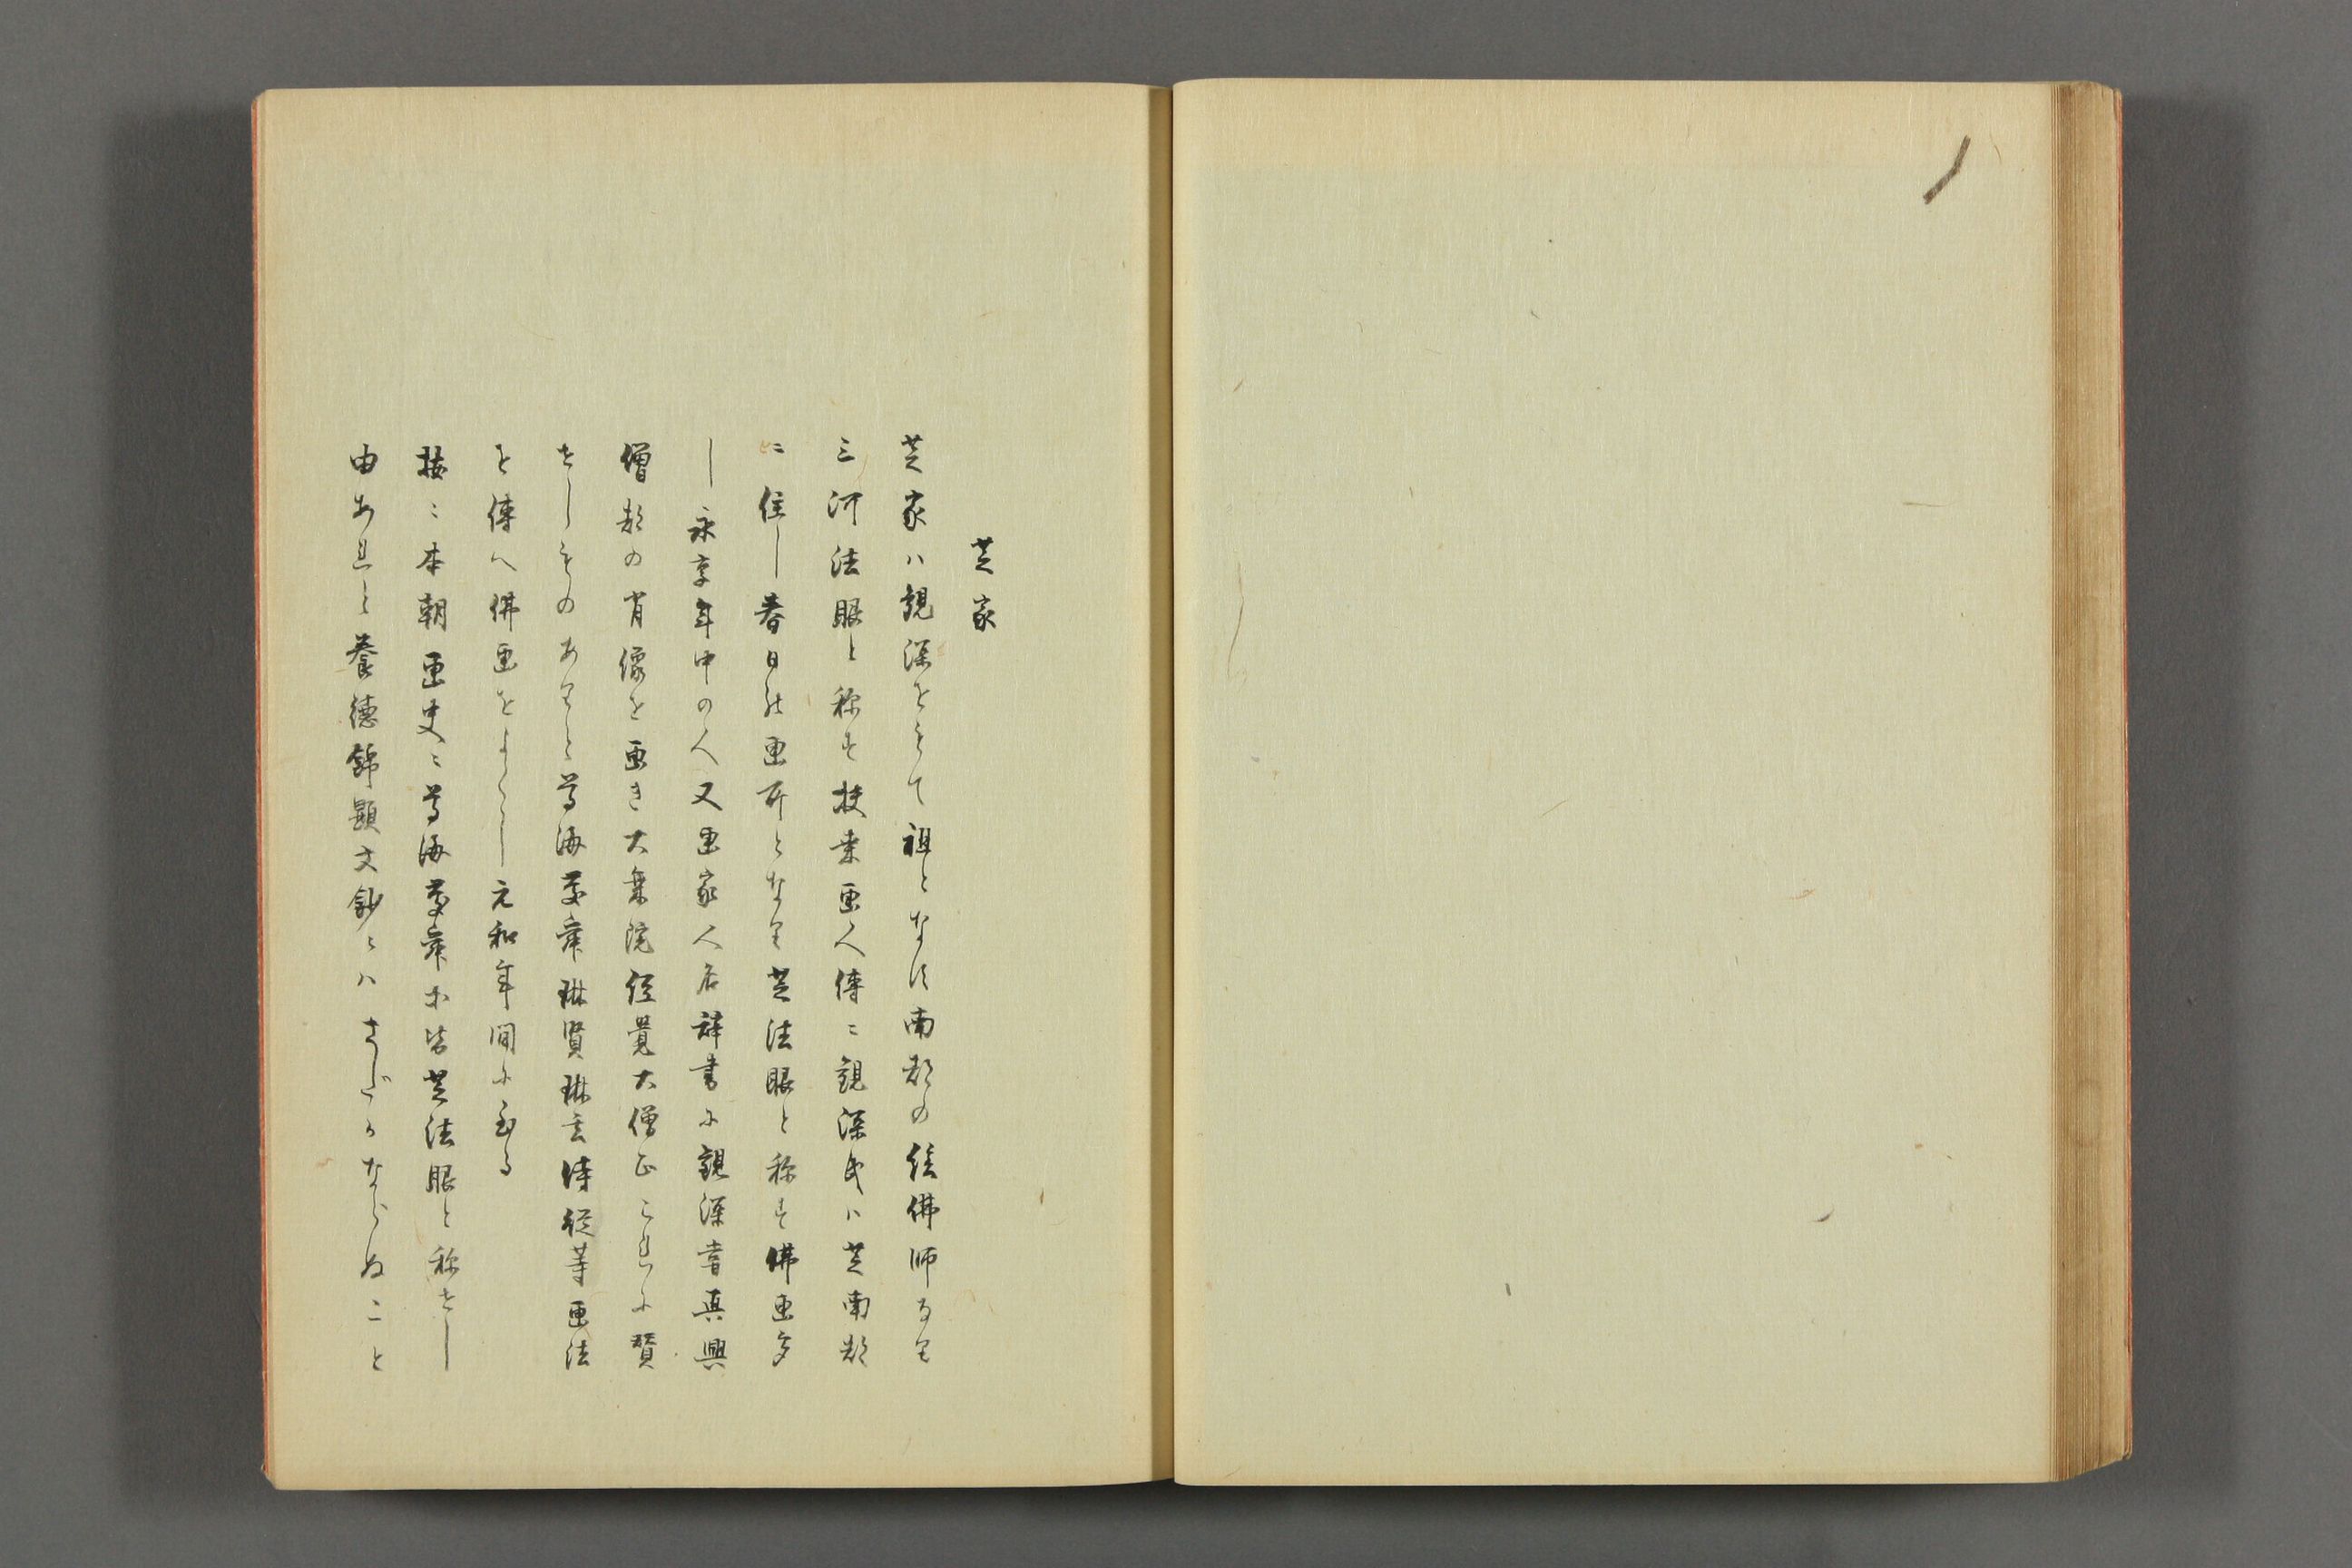 芝家
芝家ハ観深をもて祖となす南都の絵佛師なり
三河法眼と称す扶桑画人傳ニ観深氏ハ芝南都
ニ住し春日社画所となり芝法眼と称す佛画多
し永享年中の人又画家人名辞書に観深嘗真興
僧都の肖像を画き大乗院経覚大僧正これに賛
をしものありと尊海慶舜琳賢琳玄侍従等画法
を傳へ佛画をよくし元和年間に至る
按ニ本朝画史ニ尊海慶舜等皆芝法眼と称せし
由あれと養徳錦顕文鈔ニハさしだかならぬこと